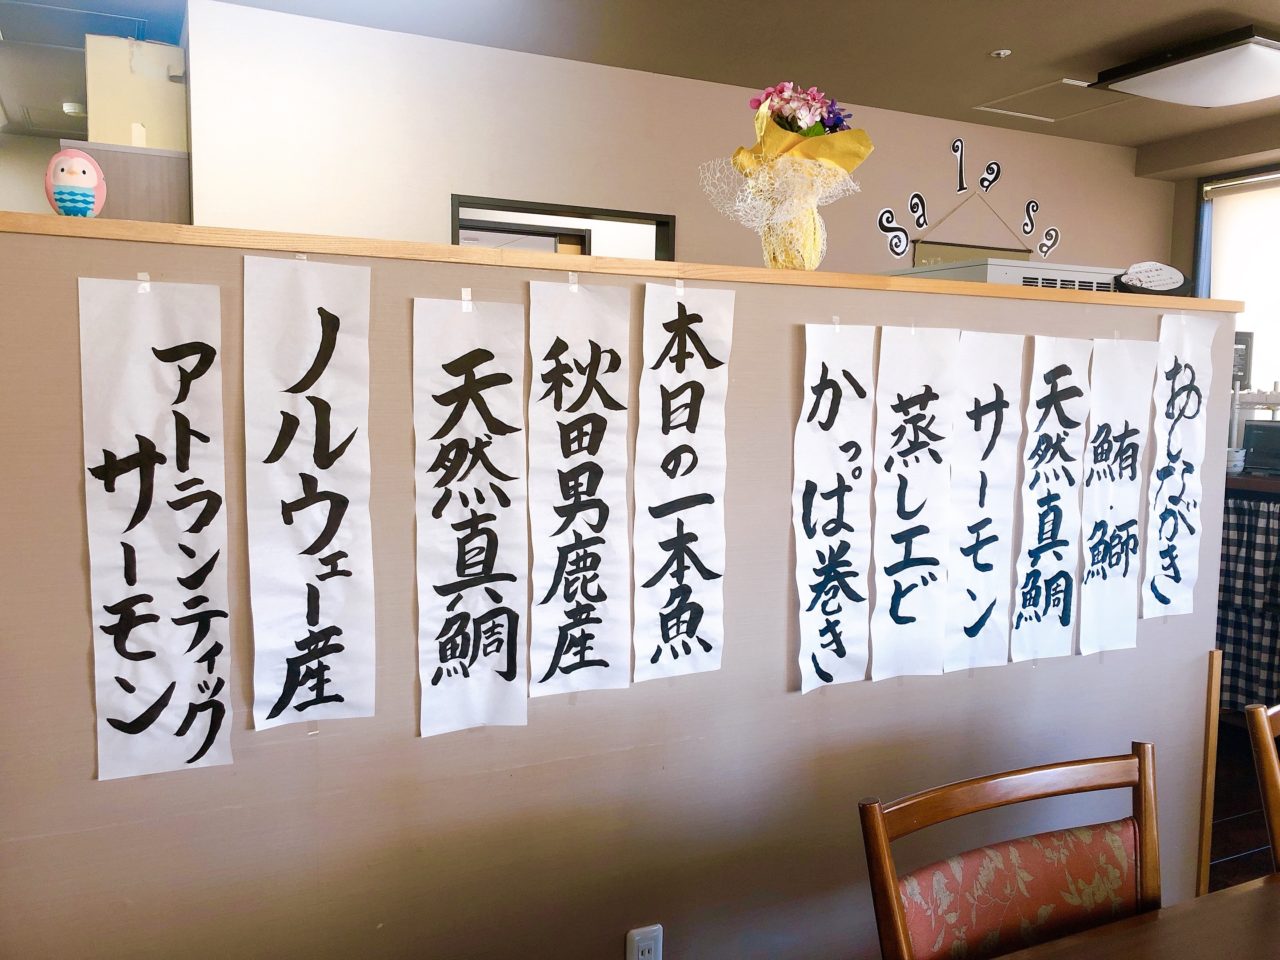 おしながき
鮪・鰤
天然真鯛
サーモン
蒸しエビ
かっぱ巻き
本日の一本魚
秋田男鹿産
天然真鯛
ノルウェー産
アトランティック
サーモン
Salasa